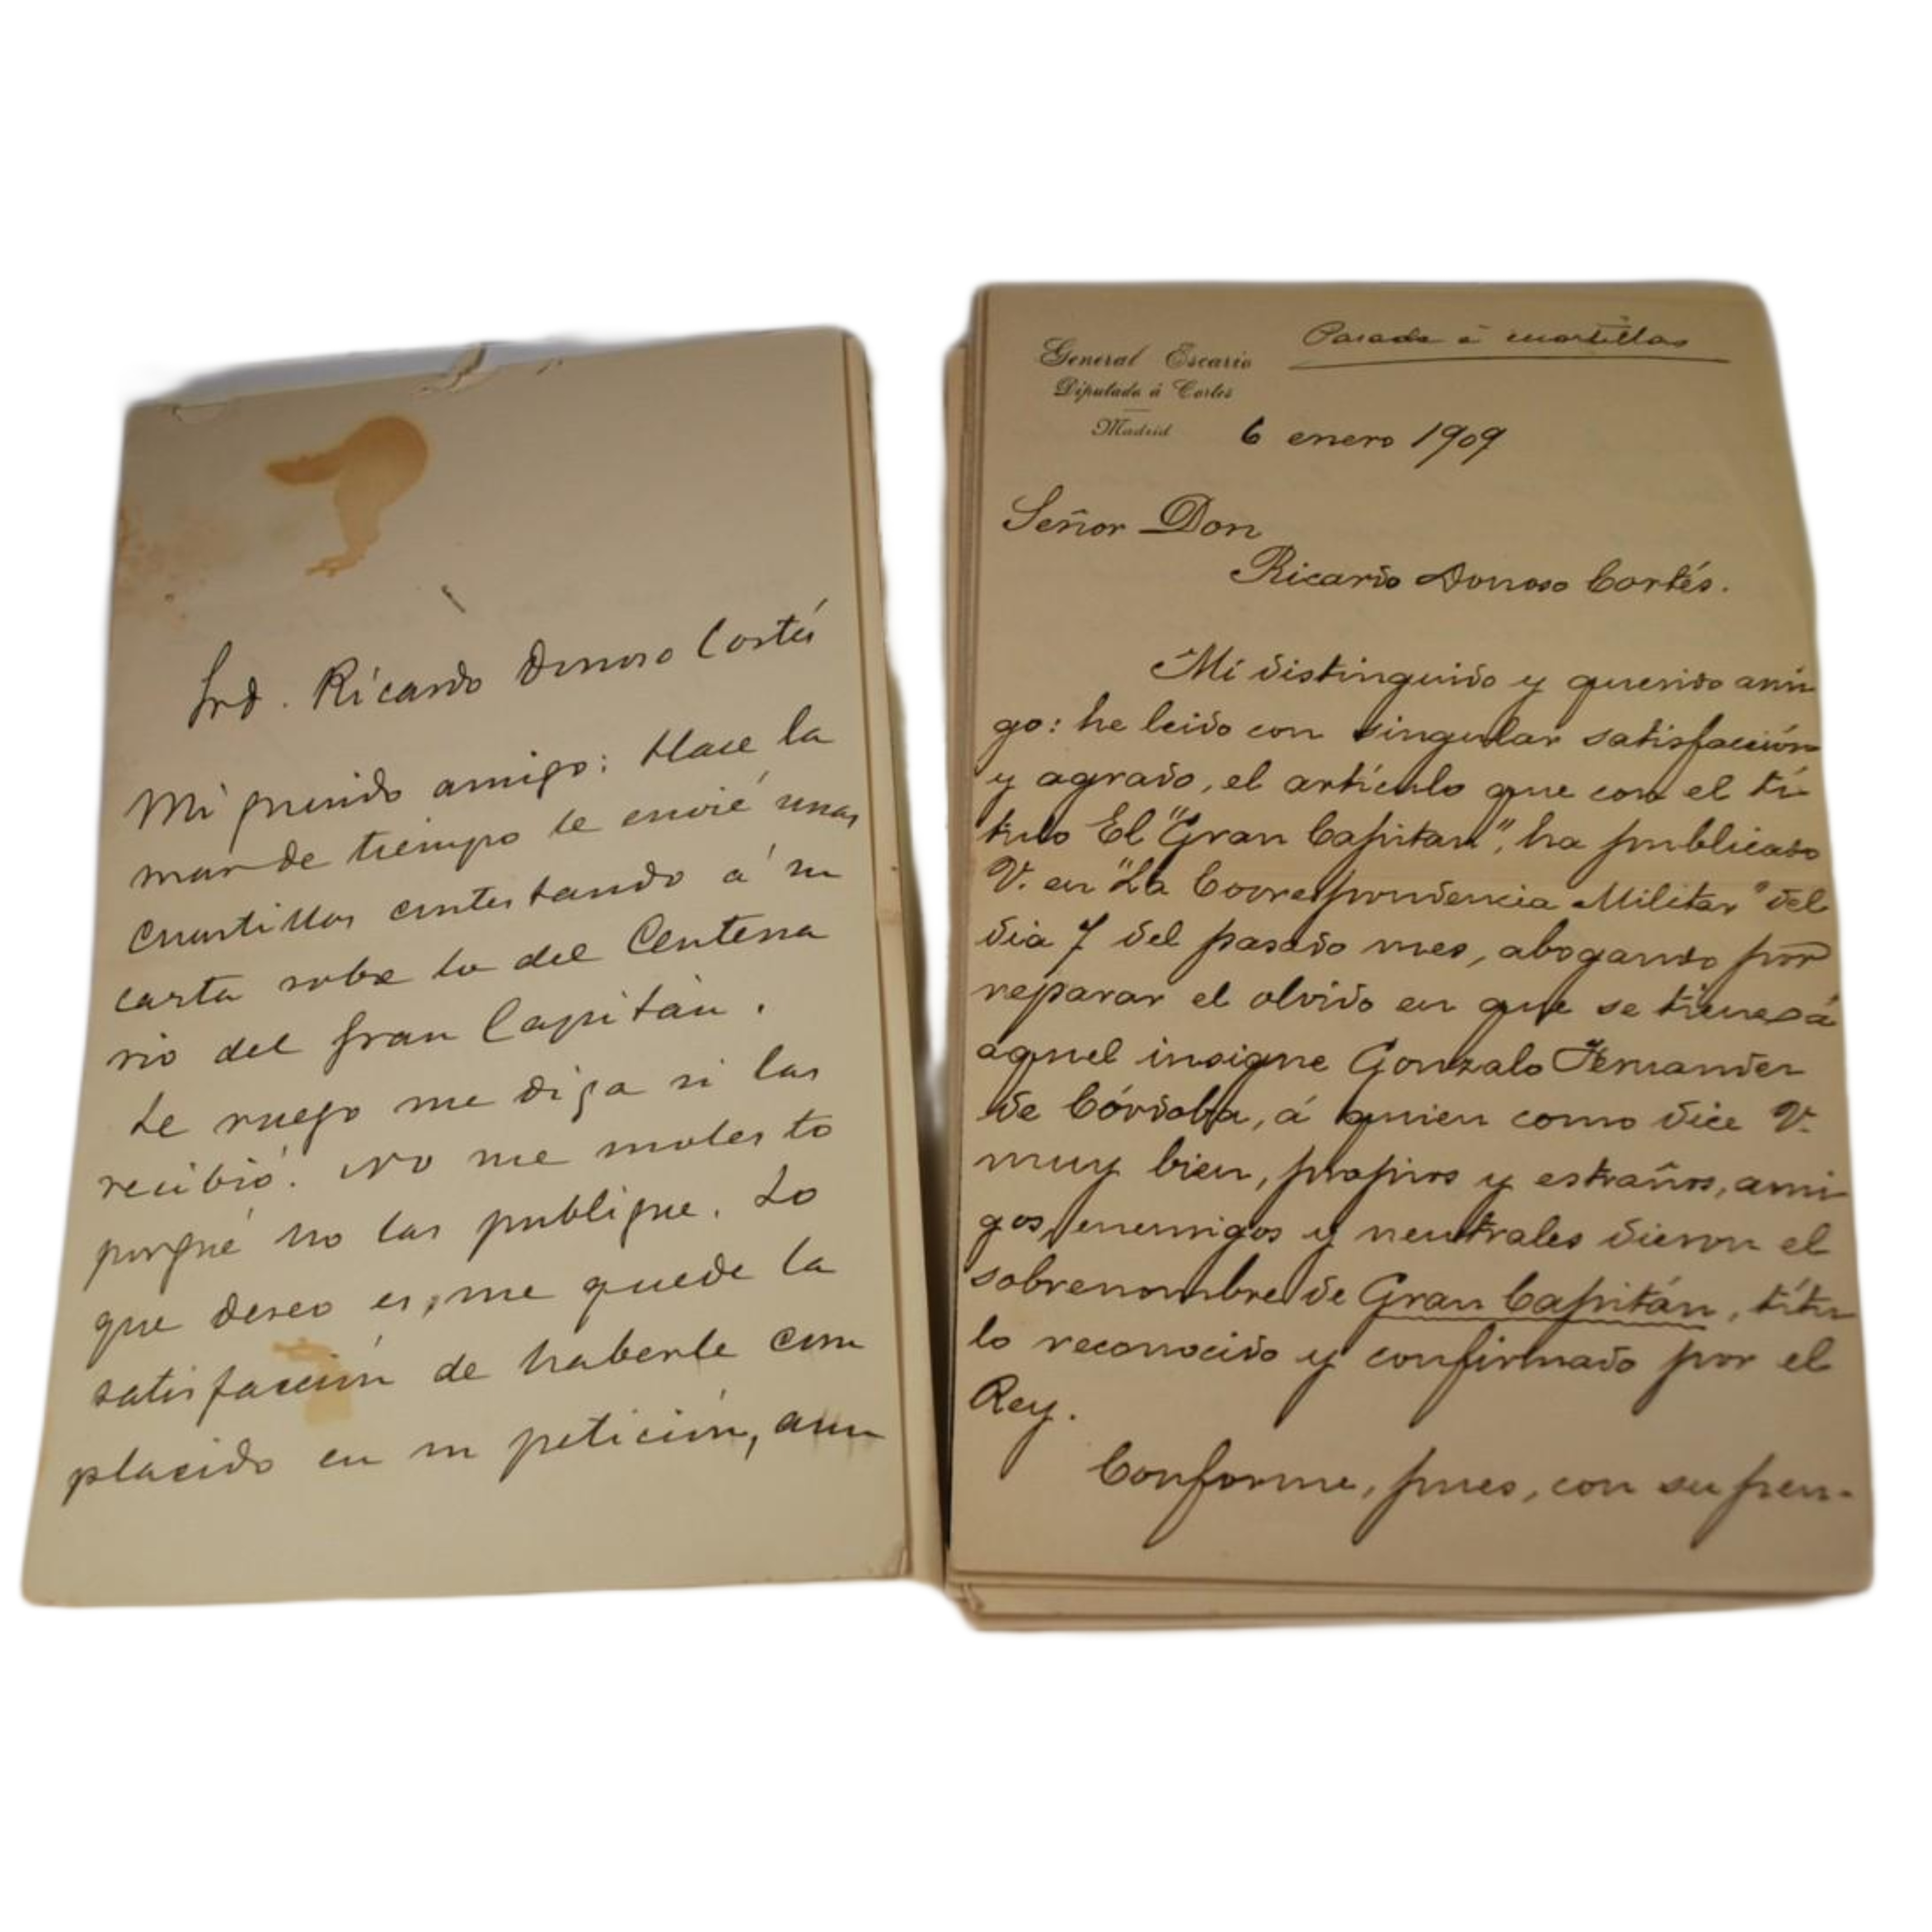 Srd. Ricardo Donoso Cortés
Mi querido amigo: Hace la
mar de tiempo le envié unas
cuartillas contestando á su
carta sobre lo del Centena
rio del Gran Capitán.
Le ruego me diga si las
recibió. No me molesto
porqué no las publique. Lo
que deseo es, me quede la
satisfacción de haberle com
placido en su petición, aun
General Escario
Diputado á Cortes
Madrid
Pasada á cuartillas
6 enero 1909
Señor Don
Ricardo Donoso Cortés.
Mi distinguido y querido ami
go: he leido con singular satisfacción
y agrado, el artículo que con el tí
tulo El "Gran Capitan", ha publicado
V. en "La Correspondencia Militar" del
dia 7 del pasado mes, abogando por
reparar el olvido en que se tiene á
aquel insigne Gonzalo Fernandez
de Córdoba, á quien como dice V.
muy bien, propios y estraños, ami
gos, enemigos y neutrales dieron el
sobrenombre de Gran Capitán, títu
lo reconocido y confirmado por el
Rey.
Conforme, pues, con su pen-